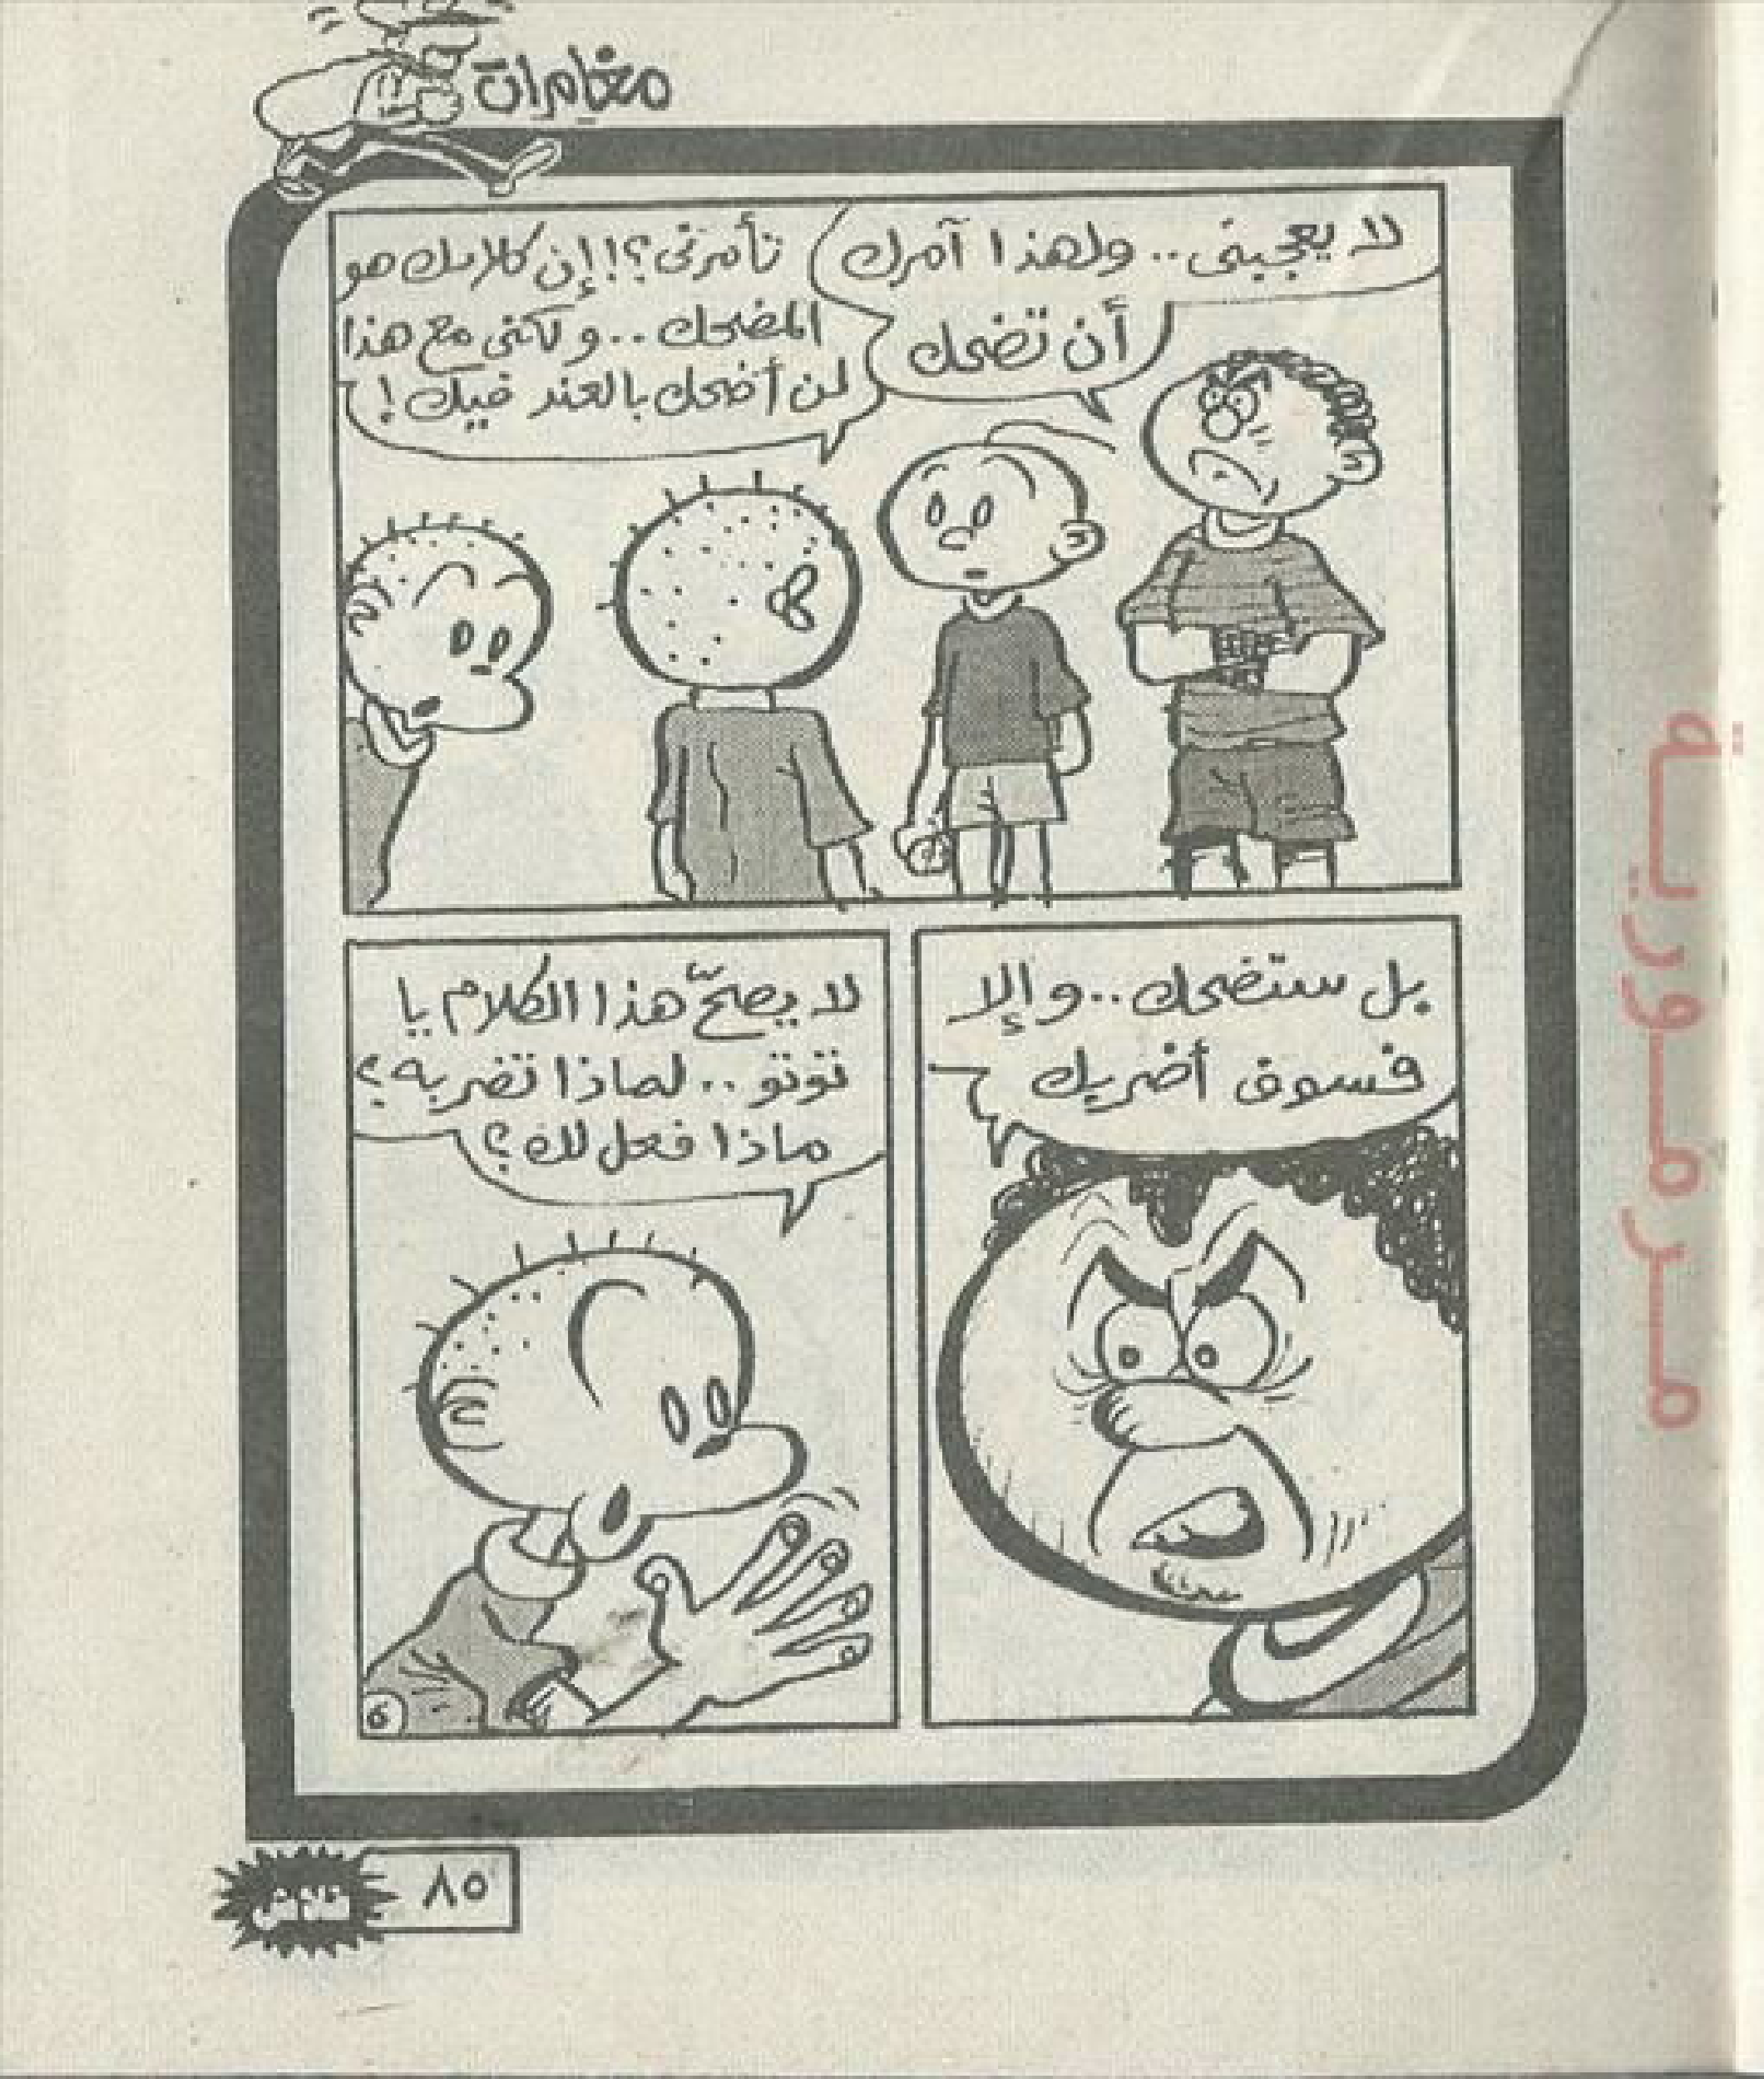 مغامرات
لا يعجبنى.. ولهذا آمرك
أن تضحك
تأمرنى؟! إن كلامك هو
المضحك.. ولكنى مع هذا
لن أضحك بالعند فيك!
بل ستضحك.. وإلا
فسوف أضربك
لا يصحّ هذا الكلام يا
توتو.. لماذا تضربه؟
ماذا فعل لك؟
6
٨٥
مرمورية